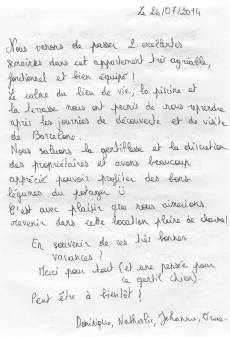 Le 26/07/2014
Nous venons de passer 2 excellentes
semaines dans cet appartement très agréable,
fonctionnel et bien équipé !
Le calme du lieu de vie, la piscine et
la terrasse nous ont permis de nous reprendre
après les journées de découverte et de visite
de Barcelone.
Nous saluons la gentillesse et la discrétion
des propriétaires et avons beaucoup
apprécié pouvoir profiter des bons
légumes du potager
C'est avec plaisir que nous aimerions
revenir dans cette location pleine de charme!
En souvenir de ces très bonnes
vacances !
Merci pour tout (et une pensée pour
ce gentil chien).
Peut être à bientôt !
Dominique, Nathalie, Johanna,